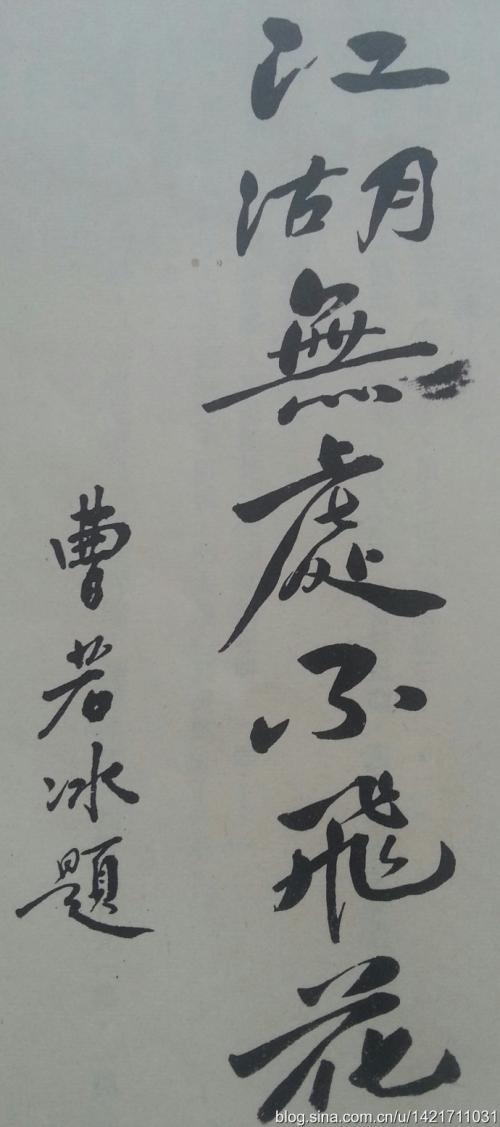 江湖無處不飛花
曹若冰題
blog.sina.com.cn/u/1421711031